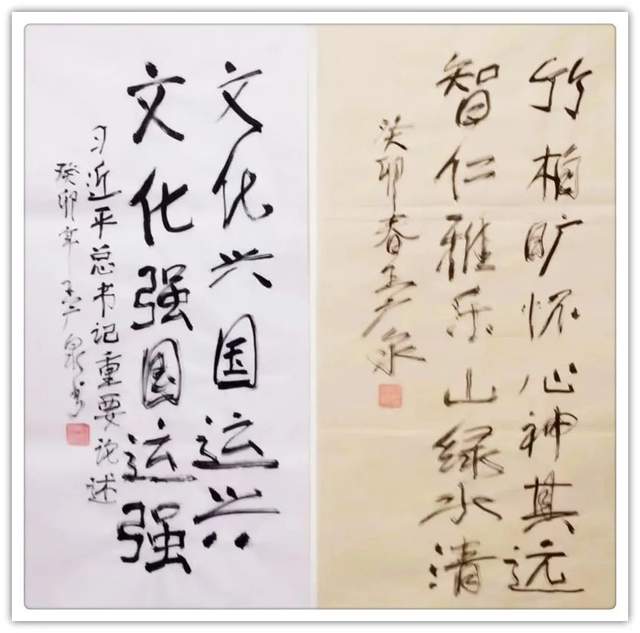 竹柏旷怀心神其远
智仁雅乐山绿水清
癸卯春王广泉
文化兴国运兴
文化强国运强
习近平总书记重要论述
癸卯年王广泉书